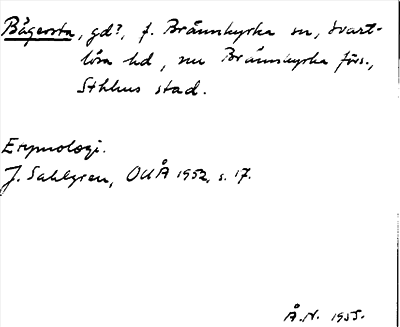 Bägersta, gd?, f. Brännkyrka sn, Svart-
lösa hd, nu Brännkyrka förs.,
Sthlms stad.
Etymologi.
J. Sahlgren, OUÅ 1952, s. 17.
Å.N. 1955.